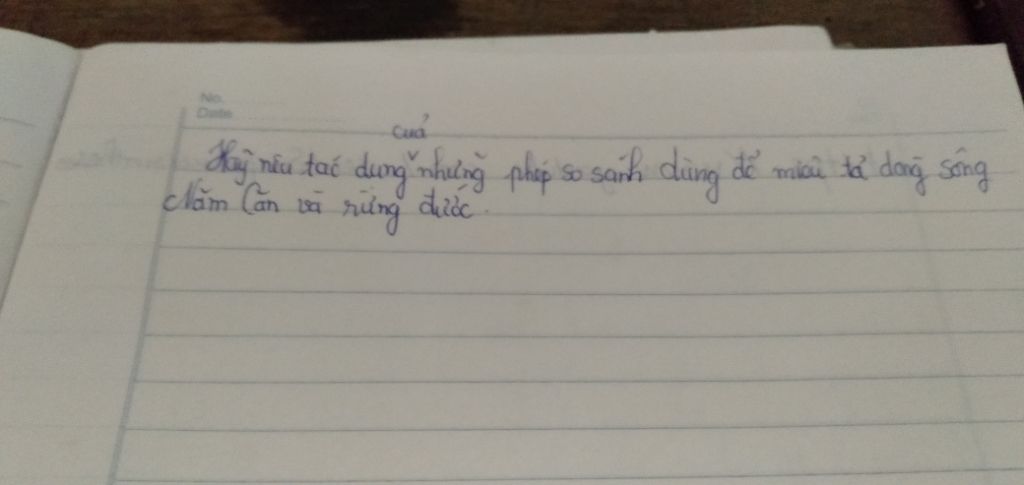 No.
Date
của
Hãy nêu tác dụng những phép so sánh dùng để miêu tả dòng sông
Năm Căn và rừng đước.